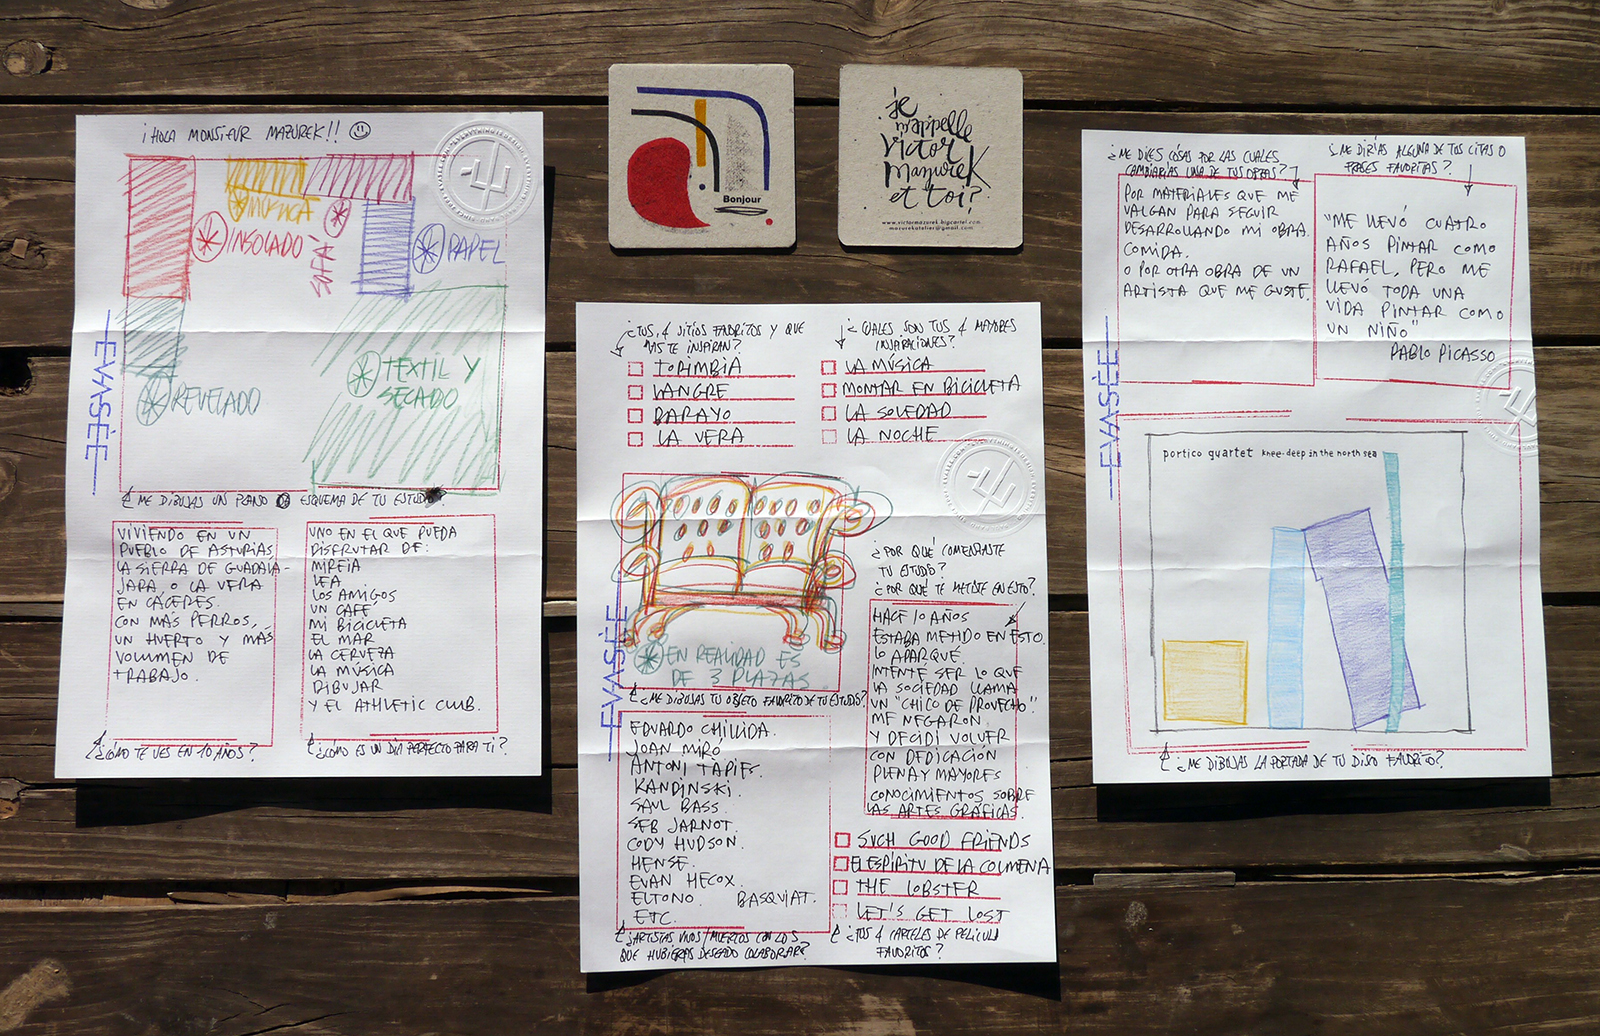 ¡HOLA MONSIEUR MAZUREK!!
MÚSICA
INSOLADO
SOFÁ
PAPEL
REVELADO
TEXTIL Y
SECADO
EVASÈE
¿ME DIBUJAS UN PLANO O ESQUEMA DE TU ESTUDIO?
VIVIENDO EN UN
PUEBLO DE ASTURIAS,
LA SIERRA DE GUADALA-
JARA, O LA VERA
EN CÁCERES.
CON MÁS PERROS,
UN HUERTO Y MÁS
VOLUMEN DE
TRABAJO.
¿CÓMO TE VES EN 10 AÑOS?
UNO EN EL QUE PUEDA
DISFRUTAR DE:
MIREIA
LEA
LOS AMIGOS
UN CAFÉ
MI BICICLETA
EL MAR
LA CERVEZA
LA MÚSICA
DIBUJAR
Y EL ATHLETIC CLUB.
¿CÓMO ES UN DÍA PERFECTO PARA TI?
Bonjour
je
m'appelle
victor
mazurek
et toi?
www.victormazurek.bigcartel.com
mazurekatelier@gmail.com
¿TUS 4 SITIOS FAVORITOS Y QUE
MÁS TE INSPIRAN?
TORIMBIA
LANGRE
BARAYO
LA VERA
¿CUALES SON TUS 4 MAYORES
INSPIRACIONES?
LA MÚSICA
MONTAR EN BICICLETA
LA SOLEDAD
LA NOCHE
EN REALIDAD ES
DE 3 PLAZAS
EVASÈE
¿ME DIBUJAS TU OBJETO FAVORITO DE TU ESTUDIO?
¿POR QUÉ COMENZASTE
TU ESTUDIO?
¿POR QUÉ TE METISTE EN ESTO?
HACE 10 AÑOS
ESTABA METIDO EN ESTO.
LO APARQUÉ.
INTENTÉ SER LO QUE
LA SOCIEDAD LLAMA
UN "CHICO DE PROVECHO".
ME NEGARON
Y DECIDÍ VOLVER
CON DEDICACIÓN
PLENA Y MAYORES
CONOCIMIENTOS SOBRE
LAS ARTES GRÁFICAS.
EDUARDO CHILLIDA.
JOAN MIRÓ
ANTONI TAPIES.
KANDINSKI.
SAUL BASS.
SEB JARNOT.
CODY HUDSON.
HENSE.
EVAN HECOX.
ELTONO. BASQUIAT.
ETC.
¿ARTISTAS VIVOS/MUERTOS CON LOS
QUE HUBIERAS DESEADO COLABORAR?
SUCH GOOD FRIENDS
EL ESPÍRITU DE LA COLMENA
THE LOBSTER
LET'S GET LOST
¿TUS 4 CARTELES DE PELICULA
FAVORITOS?
¿ME DICES COSAS POR LAS CUALES
CAMBIARÍAS UNA DE TUS OBRAS?
POR MATERIALES QUE ME
VALGAN PARA SEGUIR
DESARROLLANDO MI OBRA.
COMIDA.
O POR OTRA OBRA DE UN
ARTISTA QUE ME GUSTE.
¿ME DIRÍAS ALGUNA DE TUS CITAS O
FRASES FAVORITAS?
"ME LLEVÓ CUATRO
AÑOS PINTAR COMO
RAFAEL, PERO ME
LLEVÓ TODA UNA
VIDA PINTAR COMO
UN NIÑO"
PABLO PICASSO
EVASÈE
portico quartet knee-deep in the north sea
¿ME DIBUJAS LA PORTADA DE TU DISCO FAVORITO?